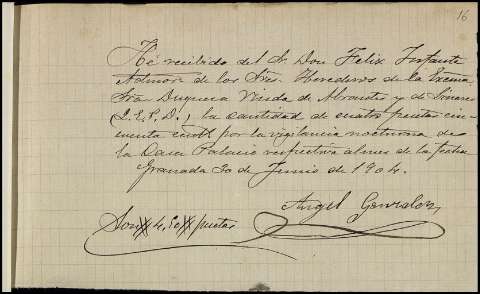 16
He recibido del Sr. Don Felix Infante
Admor de los Sres. Herederos de la Excma
Sra Duquesa Viuda de Abrantes y de Linares
(Q.E.P.D.) la cantidad de cuatro pesetas cin-
cuenta cénts por la vigilancia nocturna de
la Casa Palacio respectiva al mes de la fecha
Granada 30 de Junio de 1904.
Angel Gonzalez
Son # 4,50 # pesetas